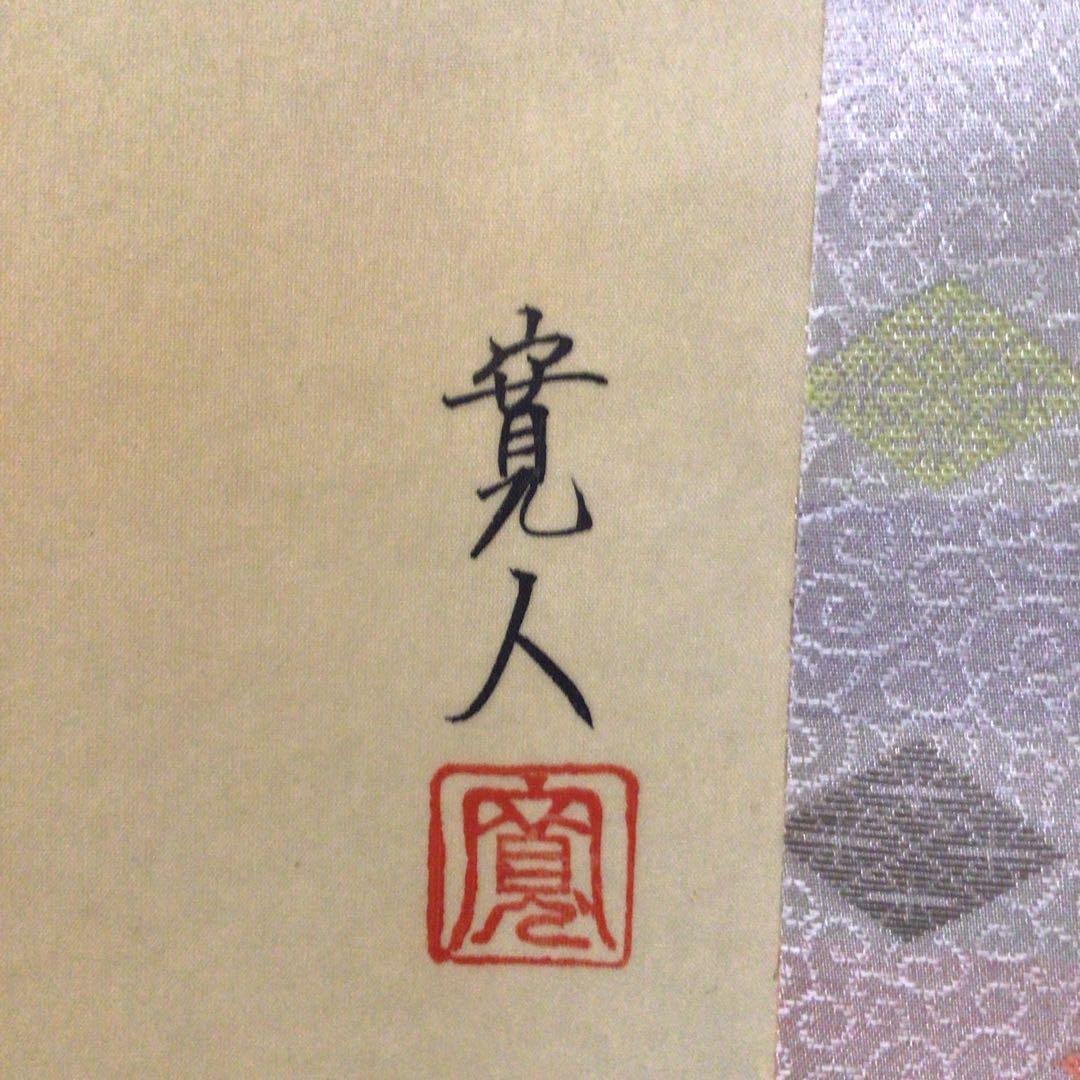 寛人
寛